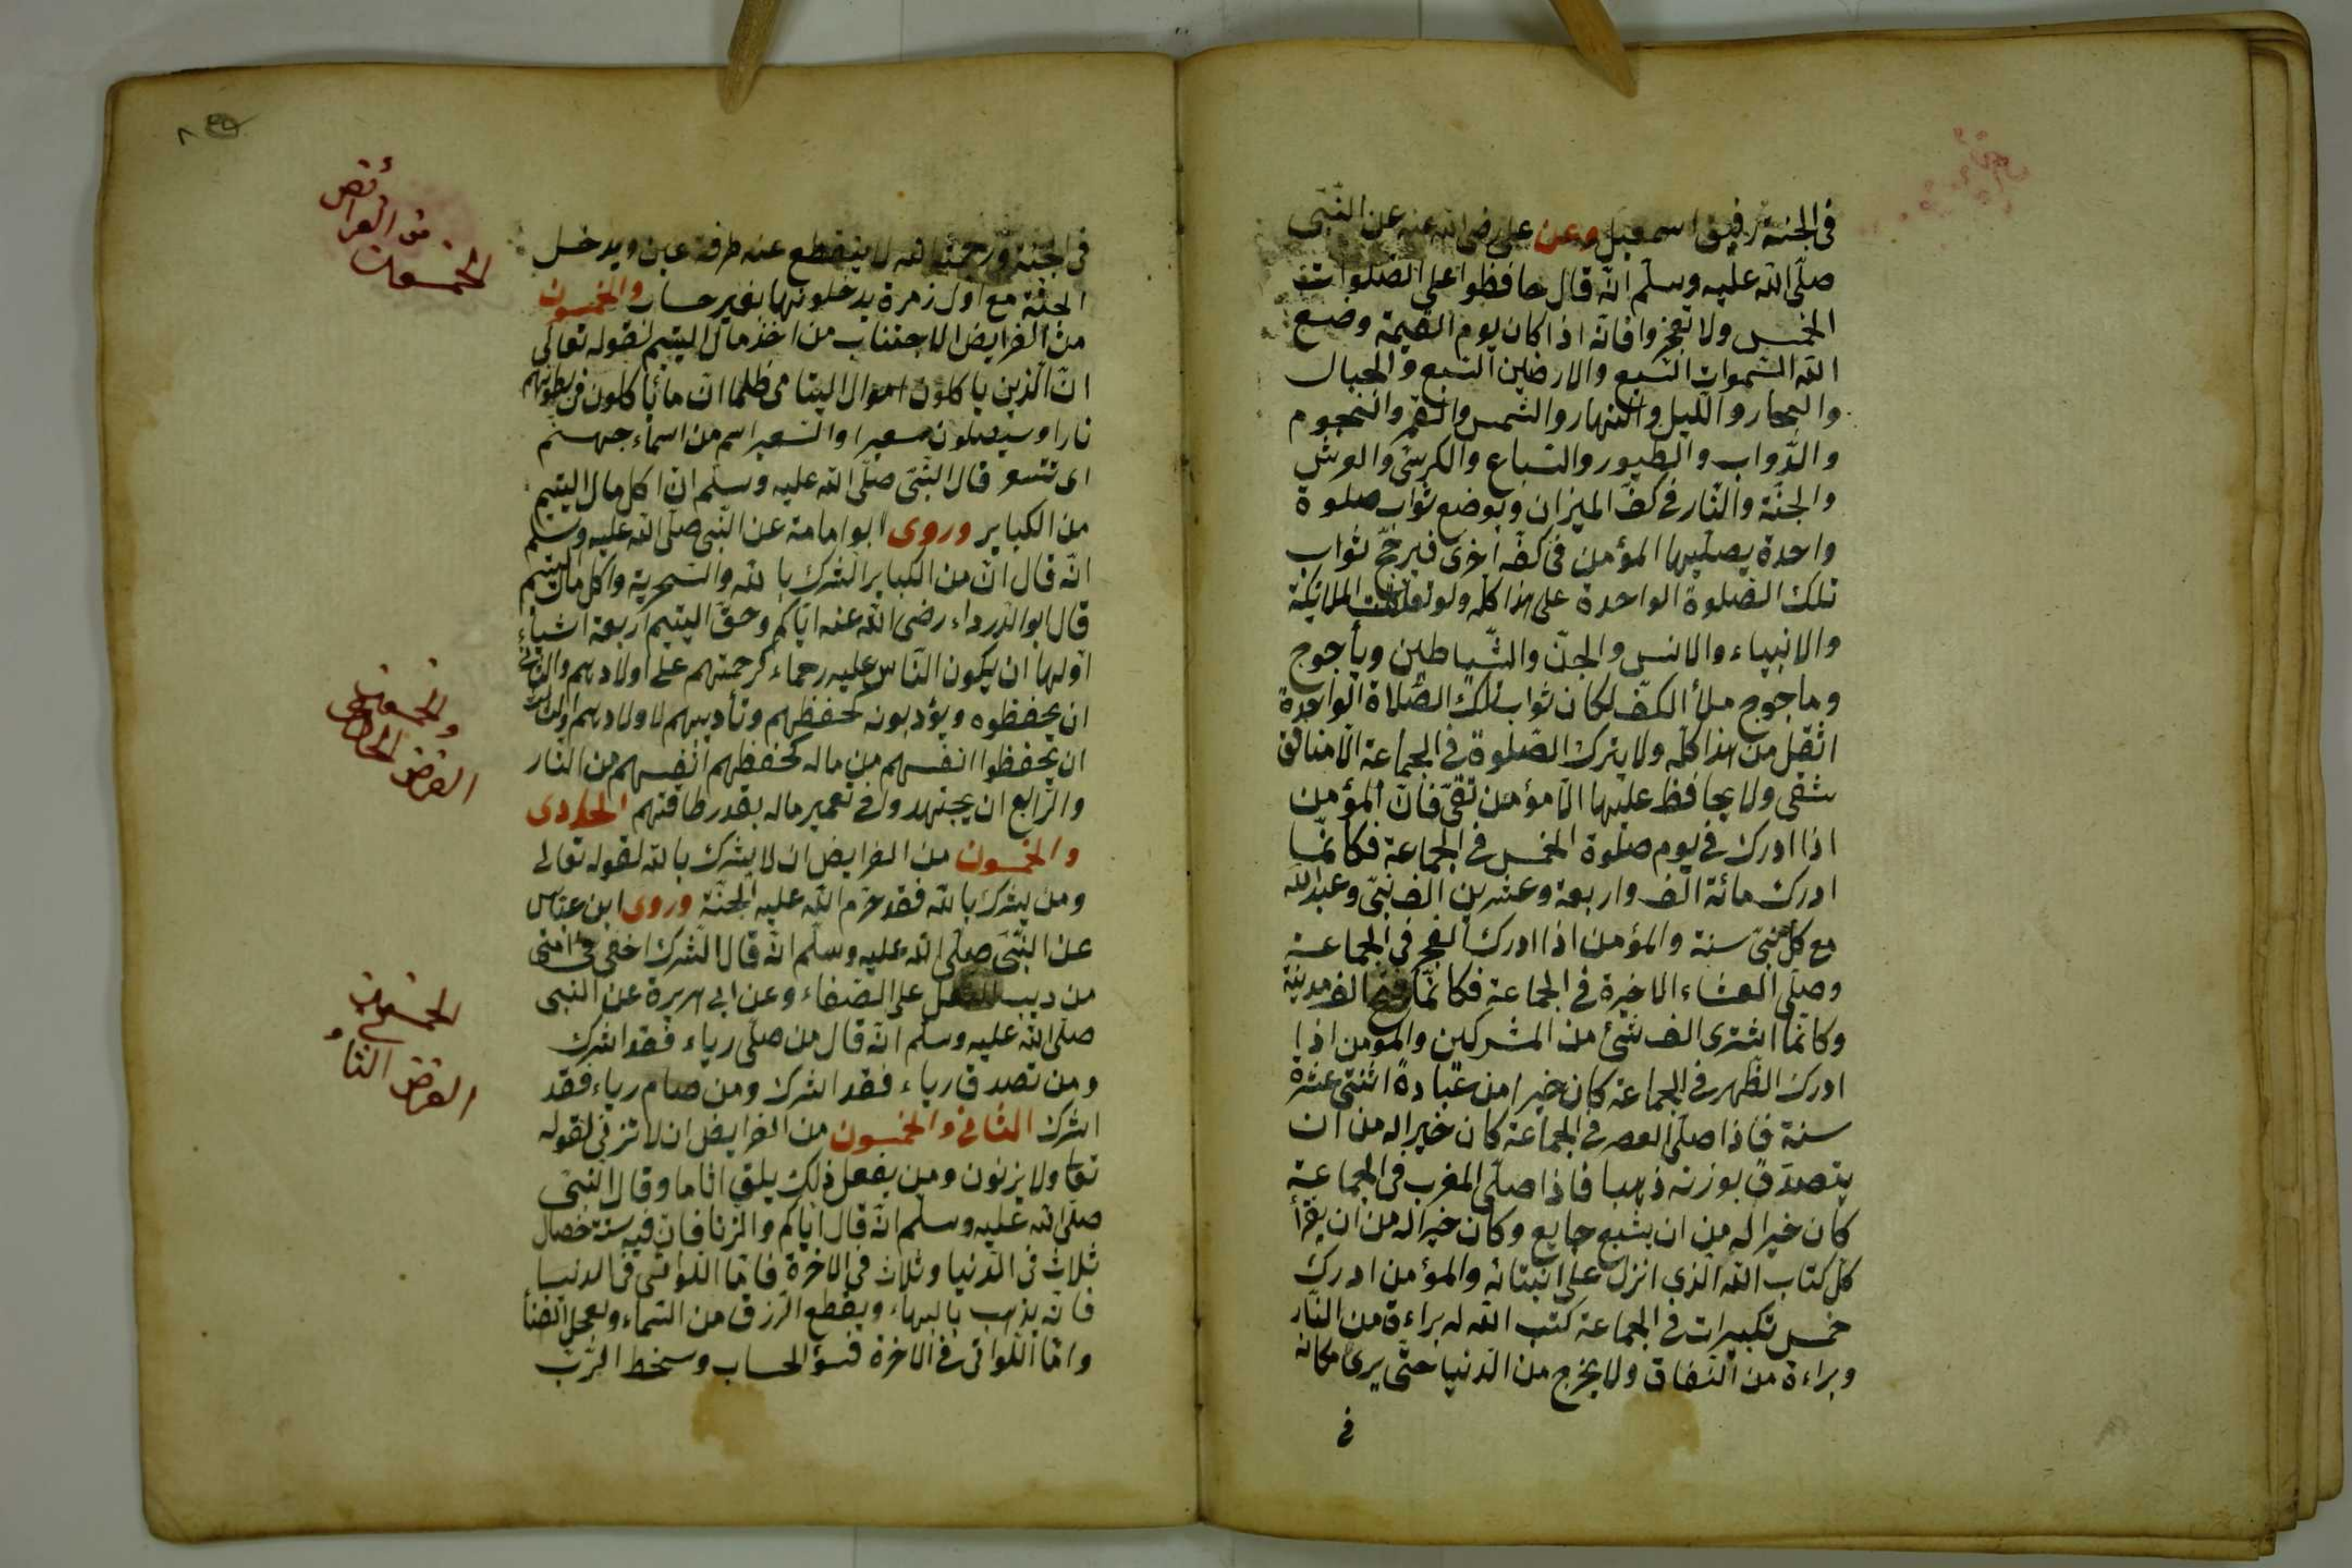 فى الجنة رفيق اسمعيل وعن على رضى الله عنه عن النّبى
صلّى الله عليه وسلّم انّه قال حافظوا على الصّلوات
الخمس ولا تعجزوا فانّه اذا كان يوم القيمة وضع
الله السّموات السّبع والارضين السّبع والجبال
والبحار والّليل والنّهار والشمس والقمر والنّجوم
والدّواب والطيور والسّباع والكرسىّ والعرش
والجنّة والنّار فى كفّ الميزان ويوضع ثواب صلوة
واحدة يصلّيها المؤمن فى كفّه اخرى فيرجّح ثواب
تلك الصّلوة الواحدة على هذا كلّه ولو تعلّقت الملائكة
والانبياء والانس والجنّ والشّياطين ويأجوج
وماجوج ملأ الكفّ لكان ثواب تلك الصّلاة الواحدة
اثقل من هذا كلّه ولا يترك الصّلوة فى الجماعة الّا منافق
شقى ولا يحافظ عليها الّا مؤمن تقىّ فانّ المؤمن
اذا ادرك فى يوم صلوة الخمس فى الجماعة فكانّما
ادرك مائة الف واربعة وعشرين الف نبىّ وعبد الله
مع كلّ نبىّ سنة والمؤمن اذا ادرك الفجر فى الجماعة
وصلّى العشاء الاخيرة فى الجماعة فكانّما فتح الف مدينة
وكانّما اشترى الف شئ من المشركين والمؤمن اذا
ادرك الظّهر فى الجماعة كان خيرا من عبادة اثنتى عشرة
سنة فاذا صلّى العصر فى الجماعة كان خيرا له من ان
يتصدّق بوزنه ذهبا فاذا صلّى المغرب فى الجماعة
كان خيرا له من ان يشبع جايع وكان خيرا له من ان يقرأ
كلّ كتاب الله الّذى انزل على انبيائه والمؤمن ادرك
خمس تكبيرات فى الجماعة كتب الله له براءة من النّار
وبراءة من النّفاق ولا يخرج من الدّنيا حتّى يرى مكانه
فى
فى الجنّة ورحمة الله لا ينقطع عنه طرفة عين ويدخل
الجنّة مع اول زمرة يدخلونها بغير حساب والخمسون
من الفرايض الاجتناب من اخذ مال اليتيم لقوله تعالى
انّ الّذين ياكلون اموال اليتامى ظلما انّما يأكلون فى بطونهم
نارا وسيصلون سعيرا والسّعير اسم من اسماء جهنّم
قال النّبىّ صلّى الله عليه وسلّم انّ اكل مال اليتيم
من الكباير وروى ابو امامة عن النّبى صلّى الله عليه وسلّم
انّه قال انّ من الكباير الشّرك بالله والسّحرية واكل مال اليتيم
قال ابو الدّرداء رضى الله عنه ايّاكم وحقّ اليتيم اربعة اشياء
اوّلها ان يكون النّاس عليه رحماء كرحمتهم على اولادهم والثّانى
ان يحفظوه ويؤدبونه كحفظهم وتأديبهم لاولادهم والثالث
ان يحفظوا انفسهم من ماله كحفظهم انفسهم من النّار
والرّابع ان يجتهدوا فى تعمير ماله بقدر طاقتهم الحادى
والخمسون من الفرايض ان لا يشرك بالله لقوله تعالى
ومن يشرك بالله فقد حرّم الله عليه الجنّة وروى ابن عبّاس
عن النّبىّ صلّى الله عليه وسلّم انّه قال الشّرك اخفى فى امتى
من دبيب النمل على الصّفاء وعن ابى هريرة عن النّبى
صلّى الله عليه وسلّم انّه قال من صلّى رياء فقد اشرك
ومن تصدق رياء فقد اشرك ومن صام رياء فقد
اشرك الثّانى والخمسون من الفرايض ان لا تزنى لقوله
تعا ولا يزنون ومن يفعل ذلك يلق اثاما وقال النّبىّ
صلّى الله عليه وسلّم انّه قال ايّاكم والزّنا فانّ فيه ستة خصال
ثلاث فى الدّنيا وثلاث فى الاخرة فامّا اللّواتى فى الدنيا
فانّه يذهب بالبهاء ويقطع الرّزق من السّماء ويعجل الفنا
وامّا الّلواتى فى الاخرة فسؤ الحساب وسخط الرّبّ
من الفرائض
الخمسون
والخمسون
الفرض الحادى
الخمسون
الفرض الثانى و